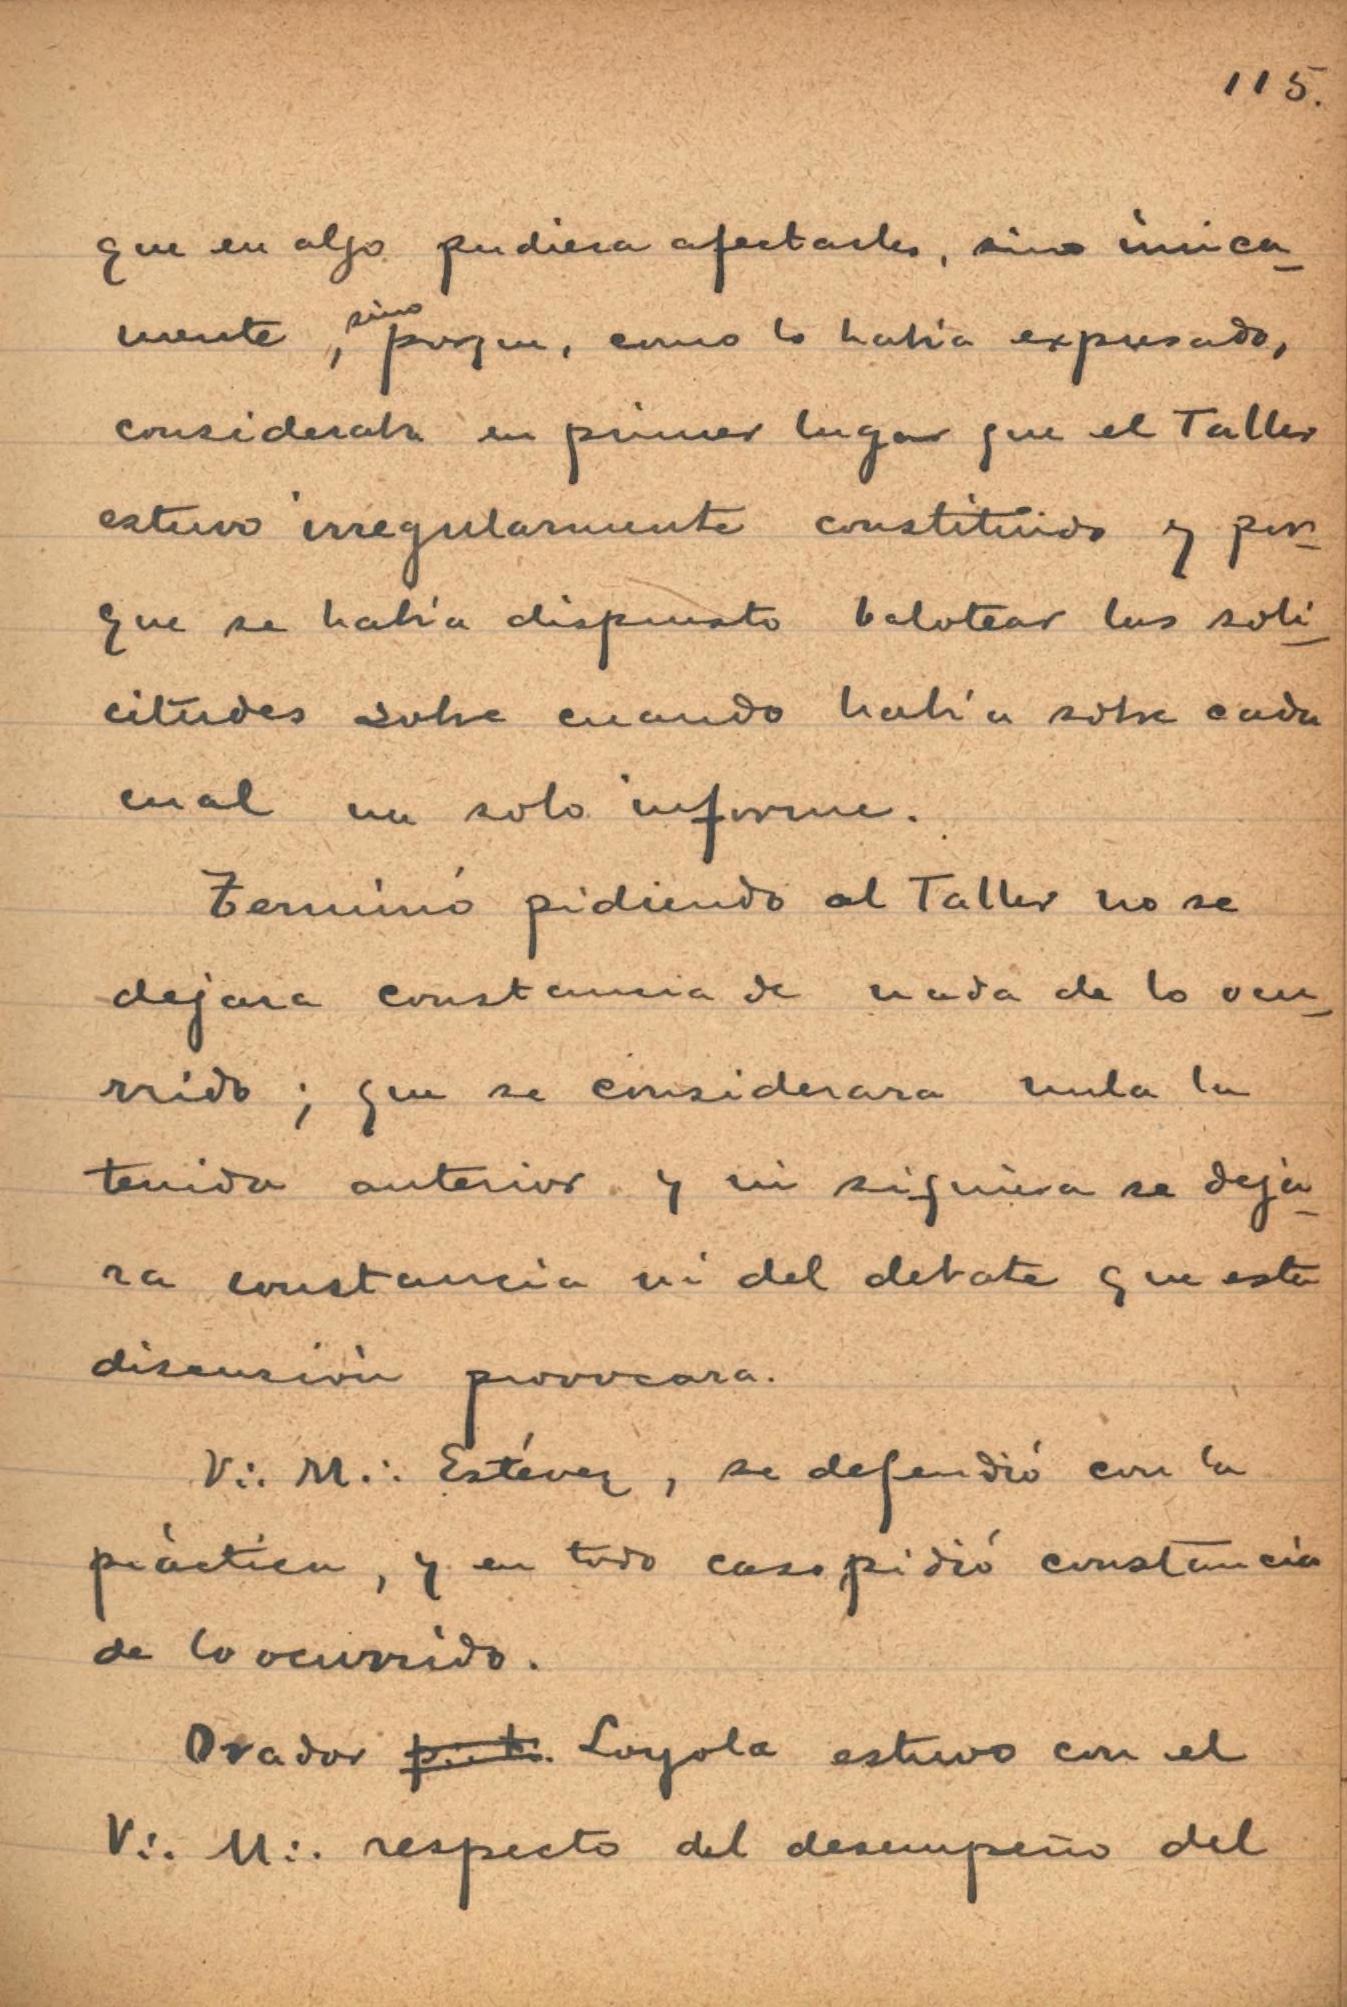 115.
que en algo pudiera afectarles, sino única-
mente, sino porque, como lo había expresado,
consideraba en primer lugar que el Taller
estuvo irregularmente constituído y por-
que se había dispuesto balotear las soli-
citudes sobre cuando había sobre cada
cual un solo informe.
Terminó pidiendo al Taller no se
dejara constancia de nada de lo ocu-
rrido; que se considerara nula la
tenida anterior y ni siquiera se deja-
ra constancia ni del debate que esta
discusión provocara.
V∴ M∴ Estévez, se defendió con la
práctica, y en todo caso pidió constancia
de lo ocurrido.
Orador Loyola estuvo con el
V∴ M∴ respecto del desempeño del